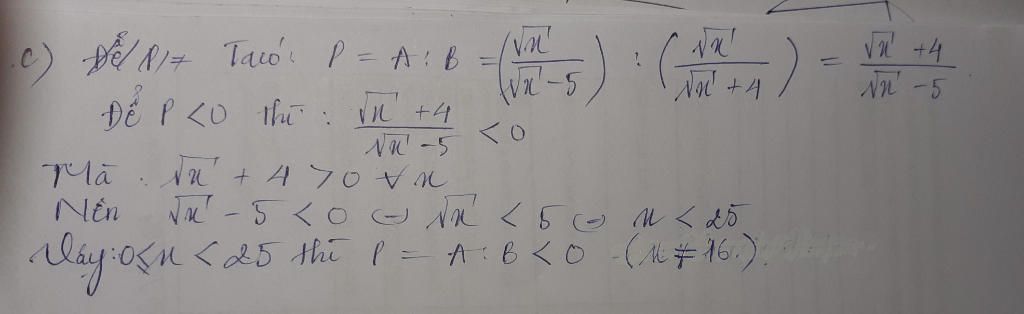 c) Ta có: P = A : B = (√x / (√x - 5)) : (√x / (√x + 4)) = (√x + 4) / (√x - 5)
Để P < 0 thì : (√x + 4) / (√x - 5) < 0
Mà : √x + 4 > 0 ∀ x
Nên √x - 5 < 0 ⇔ √x < 5 ⇔ x < 25
Vậy: 0 ≤ x < 25 thì P = A : B < 0 (x ≠ 16.)